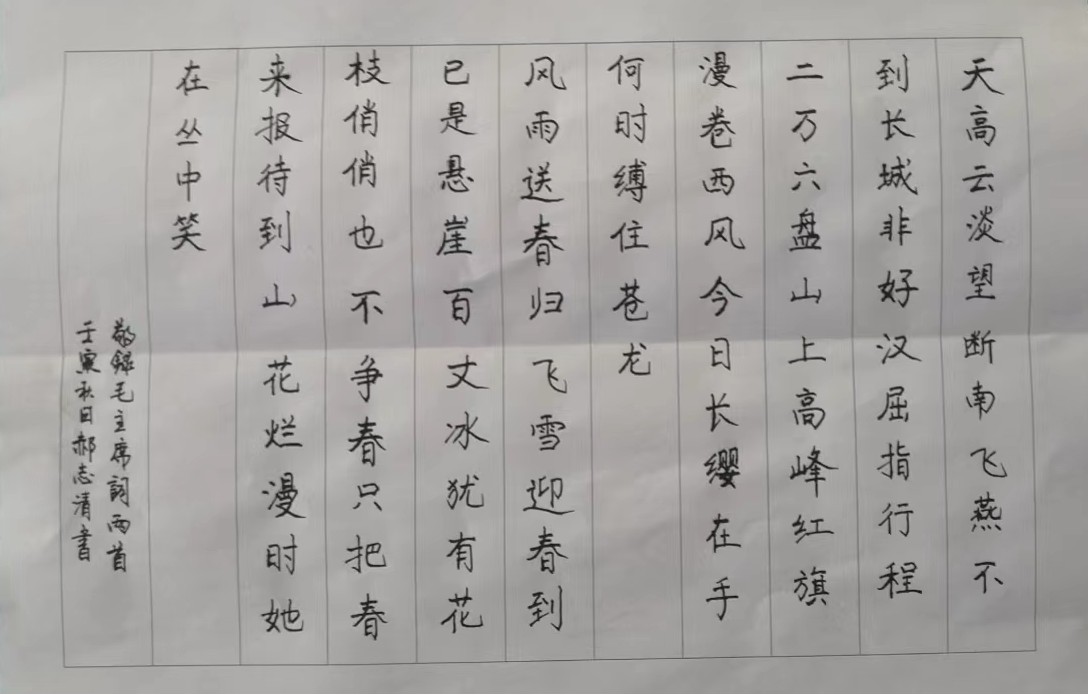 天高云淡望断南飞燕不
到长城非好汉屈指行程
二万六盘山上高峰红旗
漫卷西风今日长缨在手
何时缚住苍龙
风雨送春归飞雪迎春到
已是悬崖百丈冰犹有花
枝俏俏也不争春只把春
来报待到山花烂漫时她
在丛中笑
敬録毛主席詞两首
壬寅秋日郝志清書